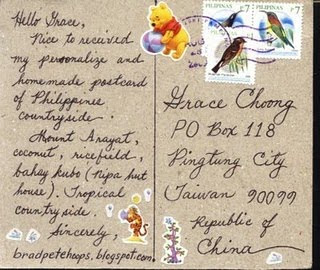 Hello Grace,
Nice to received
my personalize and
homemade postcard
of Philippines
countryside.
Mount Arayat,
coconut, ricefield,
bahay kubo (nipa hut
house). Tropical
countryside.
Sincerely
bradpetehoops.blogspot.com
PILIPINAS
7
PILIPINAS
7
PILIPINAS
7
Grace Choong
PO Box 118
Pingtung City
Taiwan 90099
Republic of
China